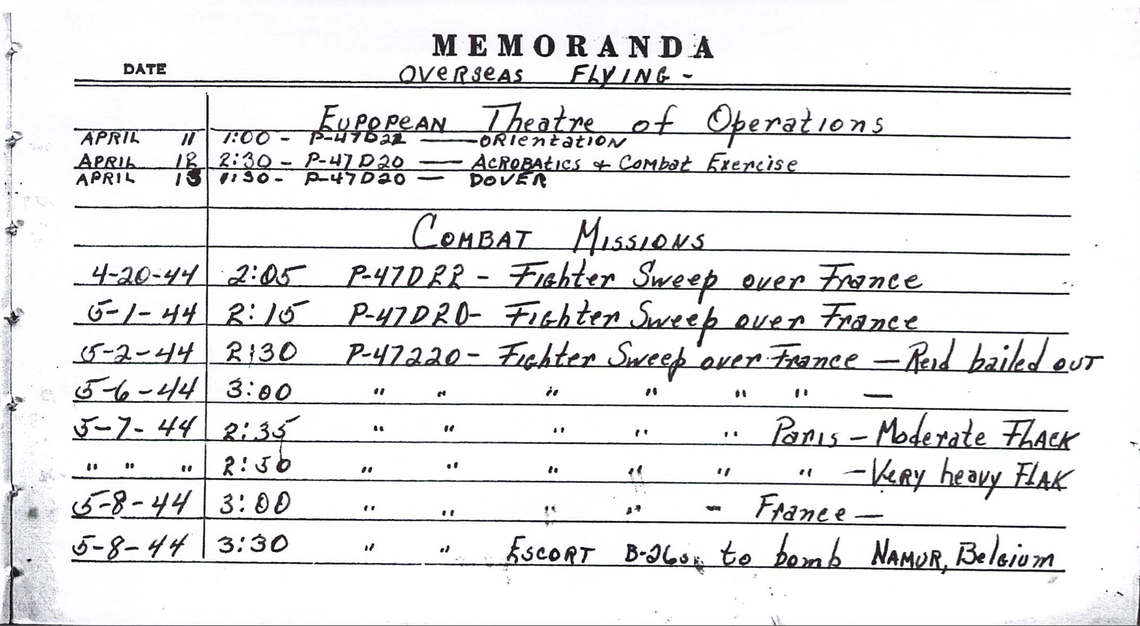 MEMORANDA
DATE OVERSEAS FLYING -
EUROPEAN Theatre of Operations
APRIL 11 1:00 - P-47D22 — ORIENTATION
APRIL 12 2:30 - P-47D20 — ACROBATICS & COMBAT Exercise
APRIL 13 1:30 - P-47D20 — DOVER
COMBAT MISSIONS
4-20-44 2:05 P-47D22 - Fighter Sweep over France
5-1-44 2:15 P-47D20- Fighter Sweep over France
5-2-44 2:30 P-47220- Fighter Sweep over France — Reid bailed OUT
5-6-44 3:00 " " " " " " —
5-7-44 2:35 " " " " " Paris — Moderate FLACK
" " " 2:50 " " " " " " — VERY heavy FLAK
5-8-44 3:00 " " " " - France —
5-8-44 3:30 " " ESCORT B-26s. to bomb NAMUR, Belgium